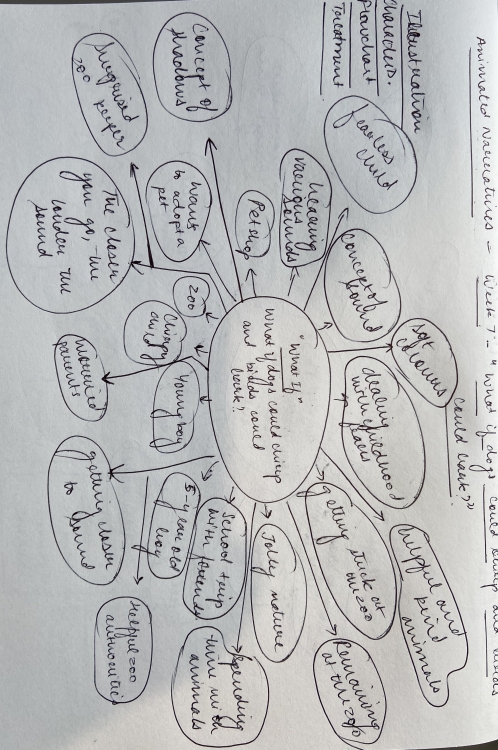 Animated Narrativities - Week 7:- "What if dogs could chirp and birds
could bark?"
Illustration
Characters.
Flowchart
Treatment
fearless
child
Concept of
shadows
hearing
various
sounds
Pet shop
wants
to adopt a
pet
Surprised
zoo keeper
The closer
you go, the
louder the
sound
zoo
Concept of
sound
soft
colours
dealing
with childhood
fears
"What If"
What if dogs could chirp
and birds could
bark?
child
worried
parents
Young boy
getting closer
to sound
5-year old
boy
School trip
with friends
Jolly nature
getting stuck at
the zoo
Helpful and
kind
animals
Remaining
at the zoo
Spending
time with
animals
Helpful zoo
authorities